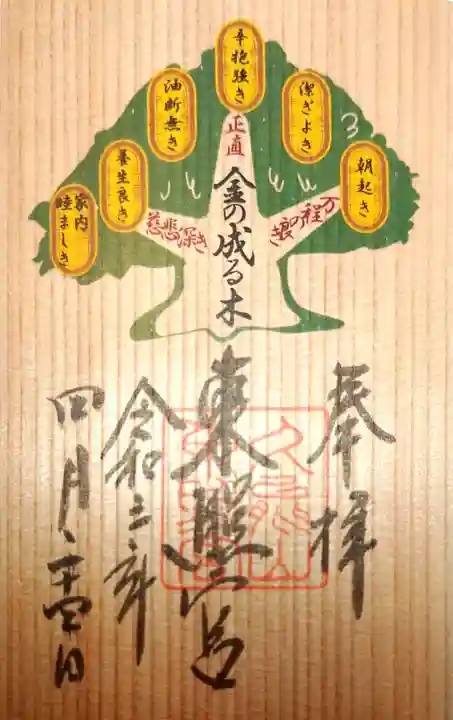 朝起き
潔ぎよき
辛抱強き
油断無き
養生良き
家内
睦ましき
万程の良き
正直
慈悲深き
金の成る木
奉拝
東照宮
令和三年
四月二十四日